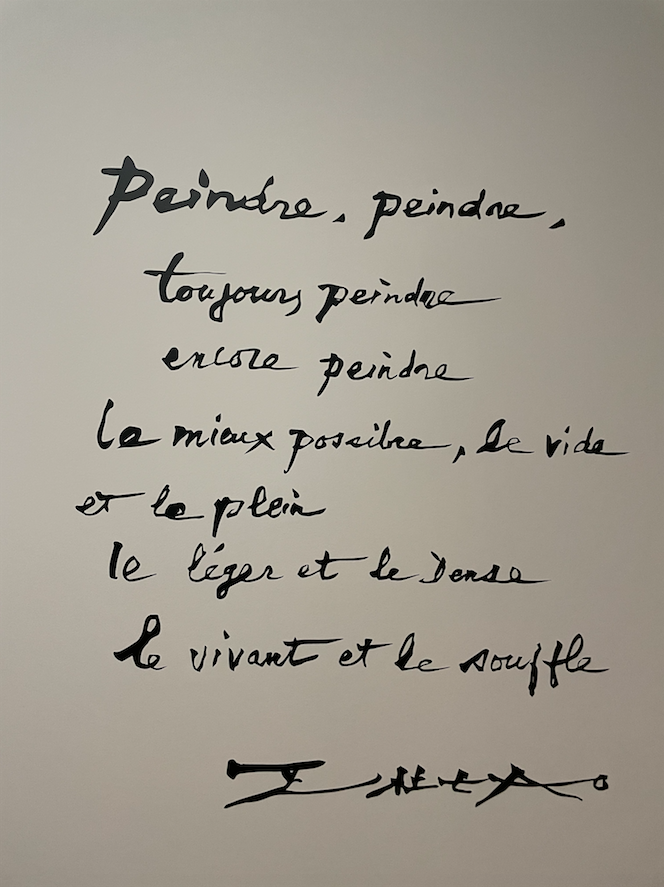 Peindre, peindre,
toujours peindre
encore peindre
le mieux possible, le vide
et le plein
le léger et le dense
le vivant et le souffle